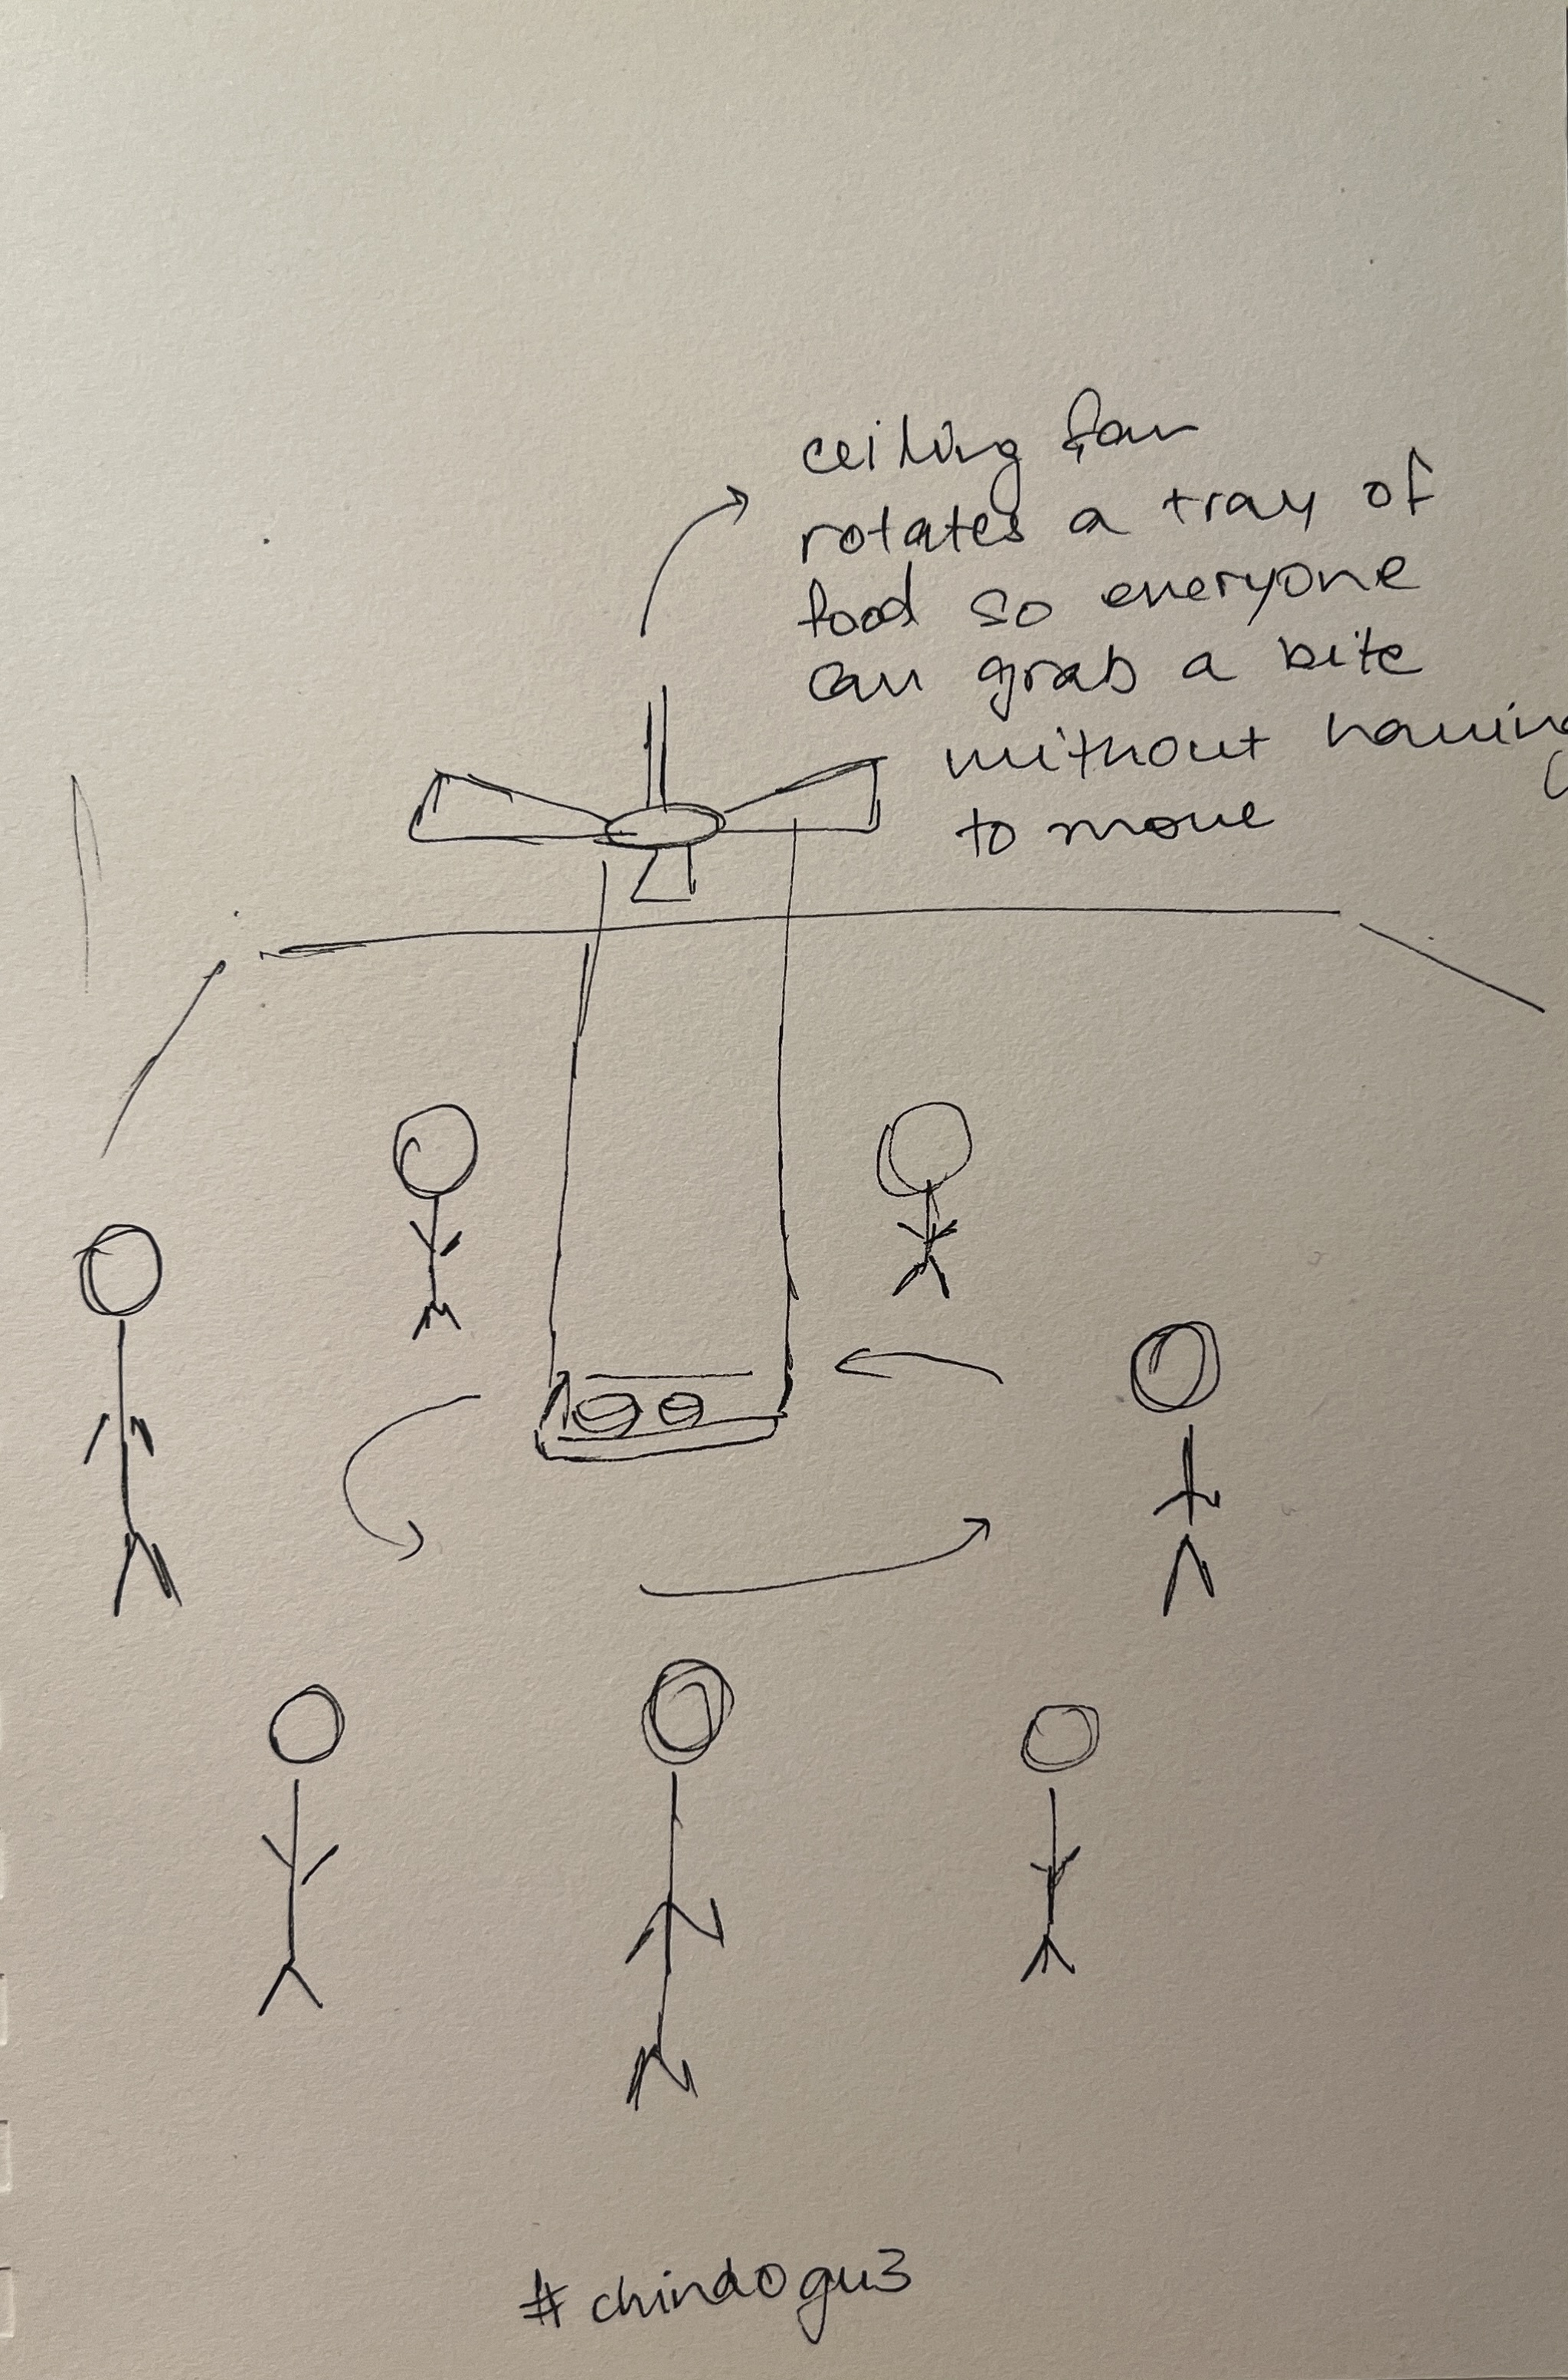 ceiling fan
rotates a tray of
food so everyone
can grab a bite
without having
to move
#chindogu3